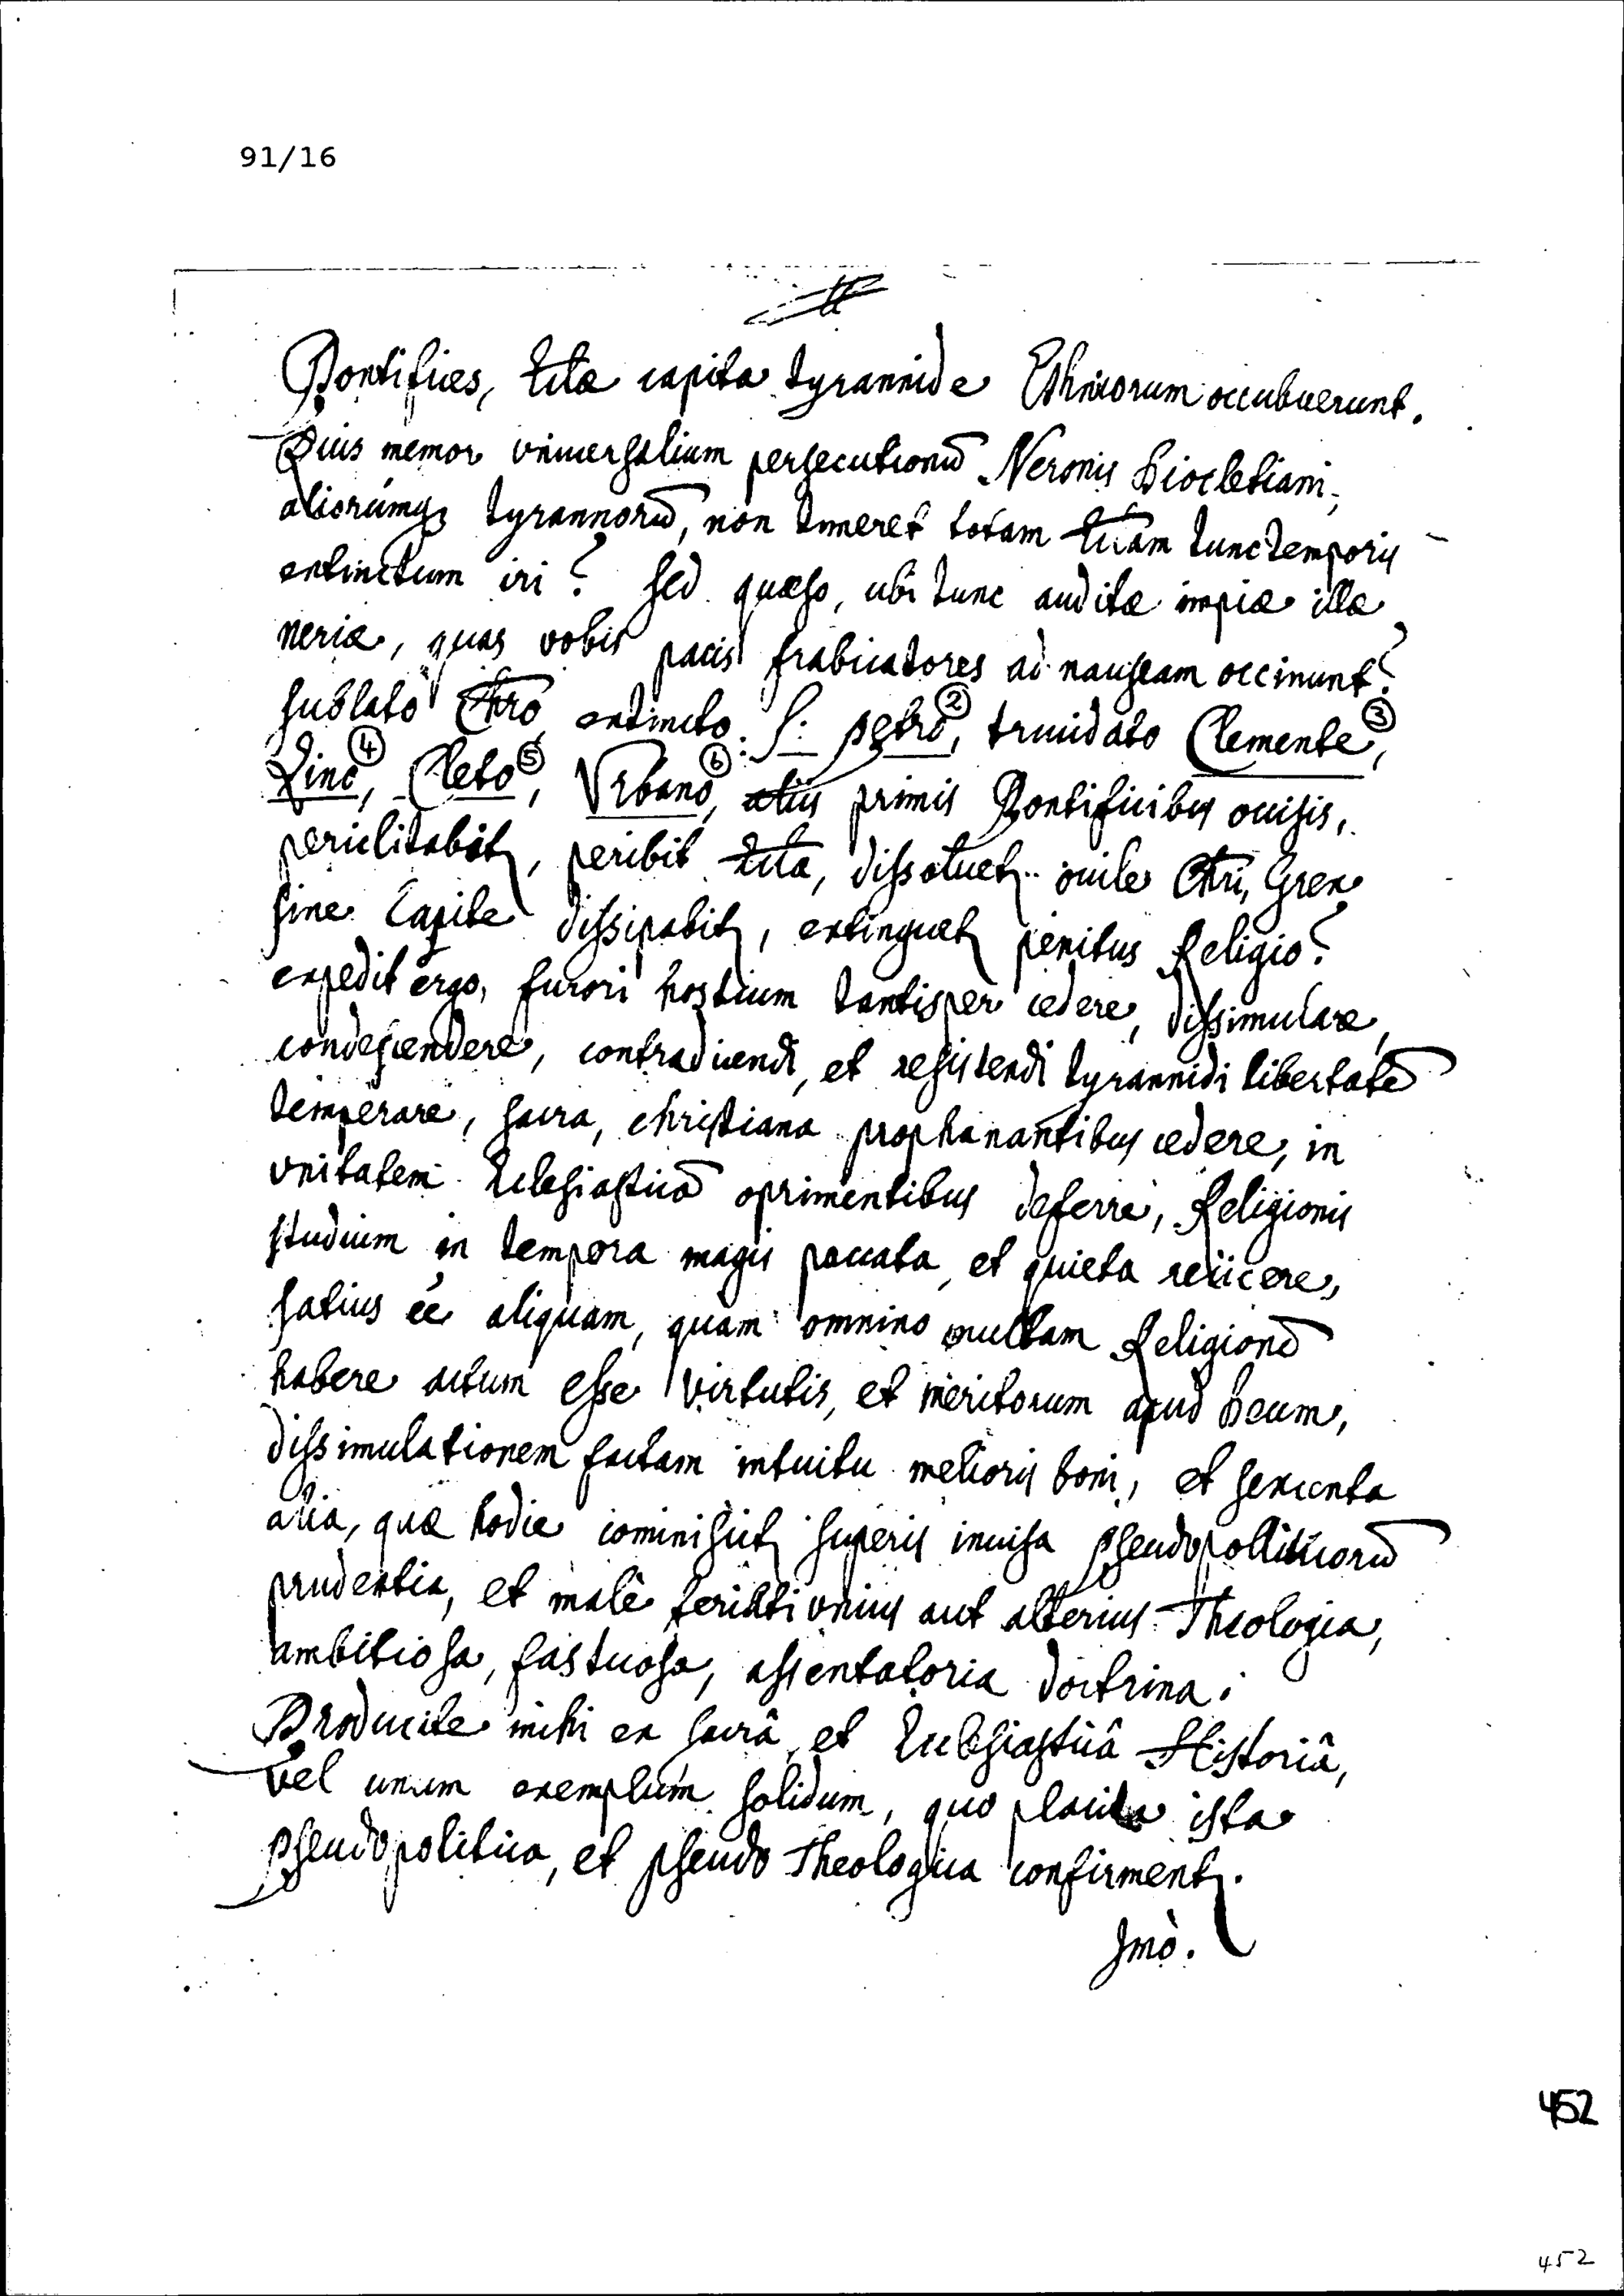 91/16
Pontifices, Eccłæ capita tyrannide Ethnicorum occubuerunt.
Quis memor vniuersalium persecutionū Neronis Diocletiani,
aliorúmqꝫ tyrannorū, non timeret totam Eccłam tunc temporis
extinctum iri? sed quæso, ubi tunc auditæ impiæ illæ
neniæ, quas vobis pacis frabicatores ad nauseam occinunt?
sublato Chro, extincto S: petro②, trucidato Clemente③,
Lino④, Cleto⑤, Vrbano⑥, aliis primis Pontificibus occisis,
periclitabitꝫ, peribit Eccła, dissoluetꝫ ouile Chri, Grex
sine Capite dissipabitꝫ, extinguetꝫ penitus Religio?
expedit ergo, furori hostium tantisper cedere, dissimulare,
condescendere, contradicendi, et resistendi tyrannidi libertatē
temperare, sacra, christiana prophanantibus cedere, in
vnitatem Ecclesiasticā oprimentibus deferre, Religionis
studium in tempora magis paccata, et quieta reiicere,
satius ēē aliquam, quam omnino nullam Religionē
habere actum esse virtutis, et meritorum apud Deum,
dissimulationem factam intuitu melioris boni, et sexcenta
alia, quæ hodie cominiscitꝫ superis inuisa pseudopolliticorū
prudentia, et malè feriati vnius aut alterius Theologia,
ambitiosa, fastuosa, assentatoria doctrina.
Producite mihi ex sacrâ, et Ecclesiasticâ Historiâ,
vel unum exemplum solidum, quo placita ista
pseudopolitica, et pseudo Theologica confirmentꝫ.
Imò.
452
452